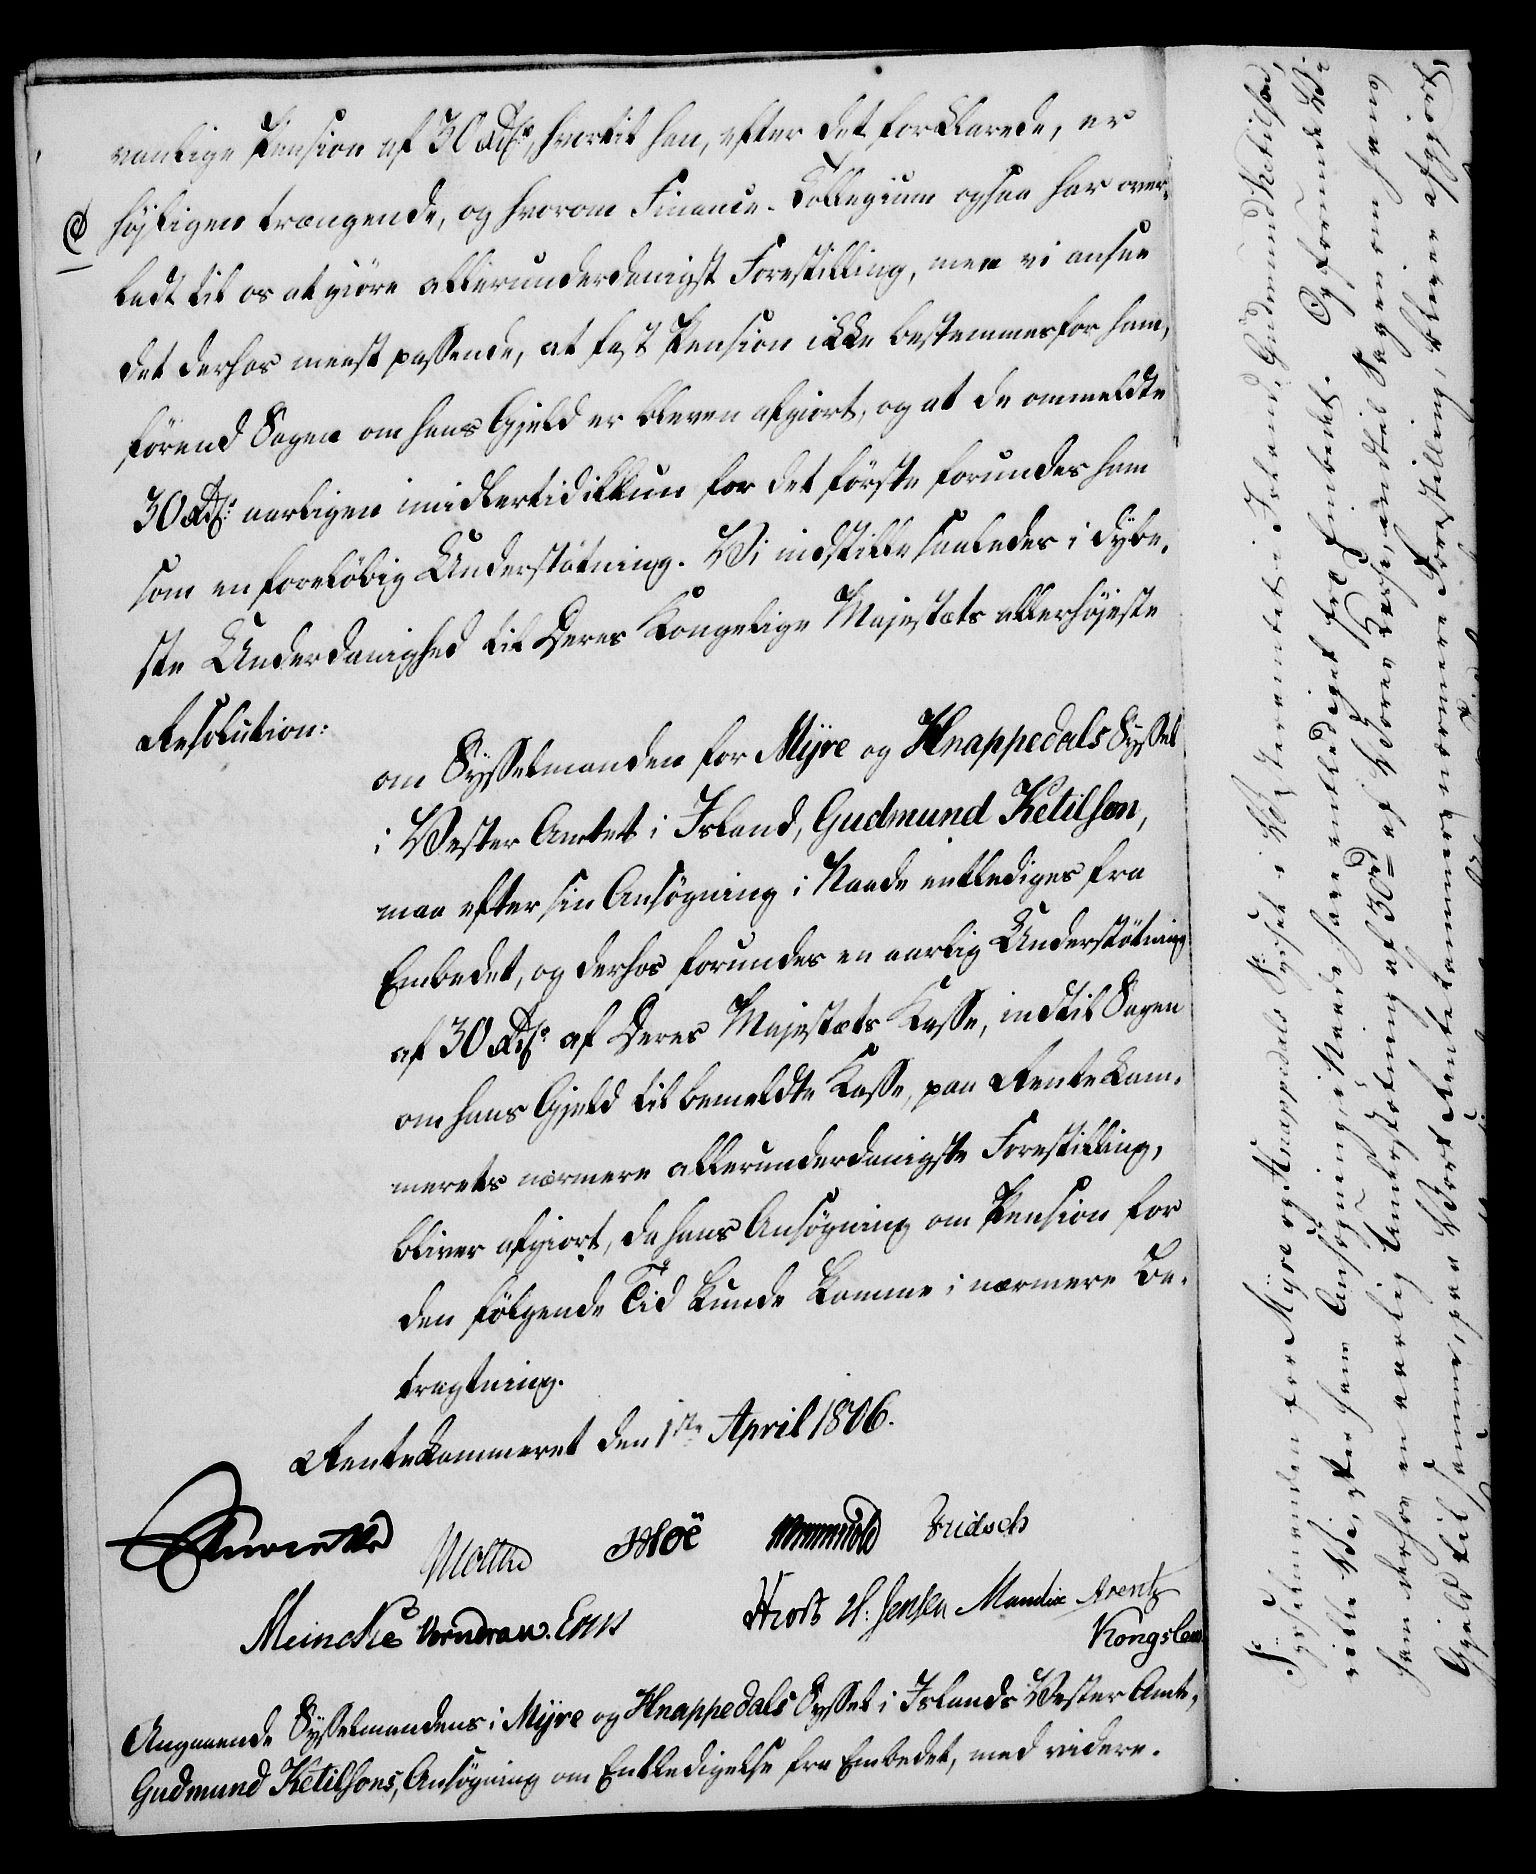 vanlige Pension af 30 Rdr, hvortil han, efter det forklarede, er
højligen trængende, og hvorom Finance-Collegium ogsaa har over-
ladt til os at giöre allerunderdanigst Forestilling, men vi ansee
det derhos meest passende, at fast Pension ikke bestemmes for ham,
förend Sagen om hans Gjeld er bleven afgiort, og at de ommeldte
30 Rdr. aarligen imidlertid ikkun for det förste forundes ham
som en foreløbig Understøtning. Vi indstille saaledes i dybe-
ste Underdanighed til Deres Kongelige Majestæts allerhøjeste
Resolution:
om Sysselmanden for Myre og Hnappedals Syssel
i Vester Amtet i Island, Gudmund Ketilson,
maa efter sin Ansögning i Naade entlediges fra
Embedet, og derhos forundes en aarlig Understøtning
af 30 Rdr. af Deres Majestæts Kasse, indtil Sagen
om hans Gjeld til bemeldte Kasse, paa Rentekam-
merets nærmere allerunderdanigste Forestilling,
bliver afgiort, da hans Ansögning om Pension for
den følgende Tid kunde komme i nærmere Be-
tragtning.
Rentekammeret den 1ste April 1806.
Moltke Hoë Fridsch
Meincke Vorndran. H. Jensen Mandix Arentz
Kongslew
Angaaende Sysselmandens i Myre og Hnappedals Syssel i Islands Vester Amt,
Gudmund Ketilsons, Ansögning om Entledigelse fra Embedet, med videre.
Sysselmanden for Myre og Hnappedals Syssel i Vesteramtet i Island, Gudmund Ketilson,
ville Vi, efter hans Ansögning, i Naade have entlediget fra Embedet. Og forunde Vi
ham derhos en aarlig Understøtning af 30 rd af Vores Kasse, indtil Sagen om hans
Gjeld til samme, paa Vort Rentekammers nærmere Forestilling, bliver afgjort,